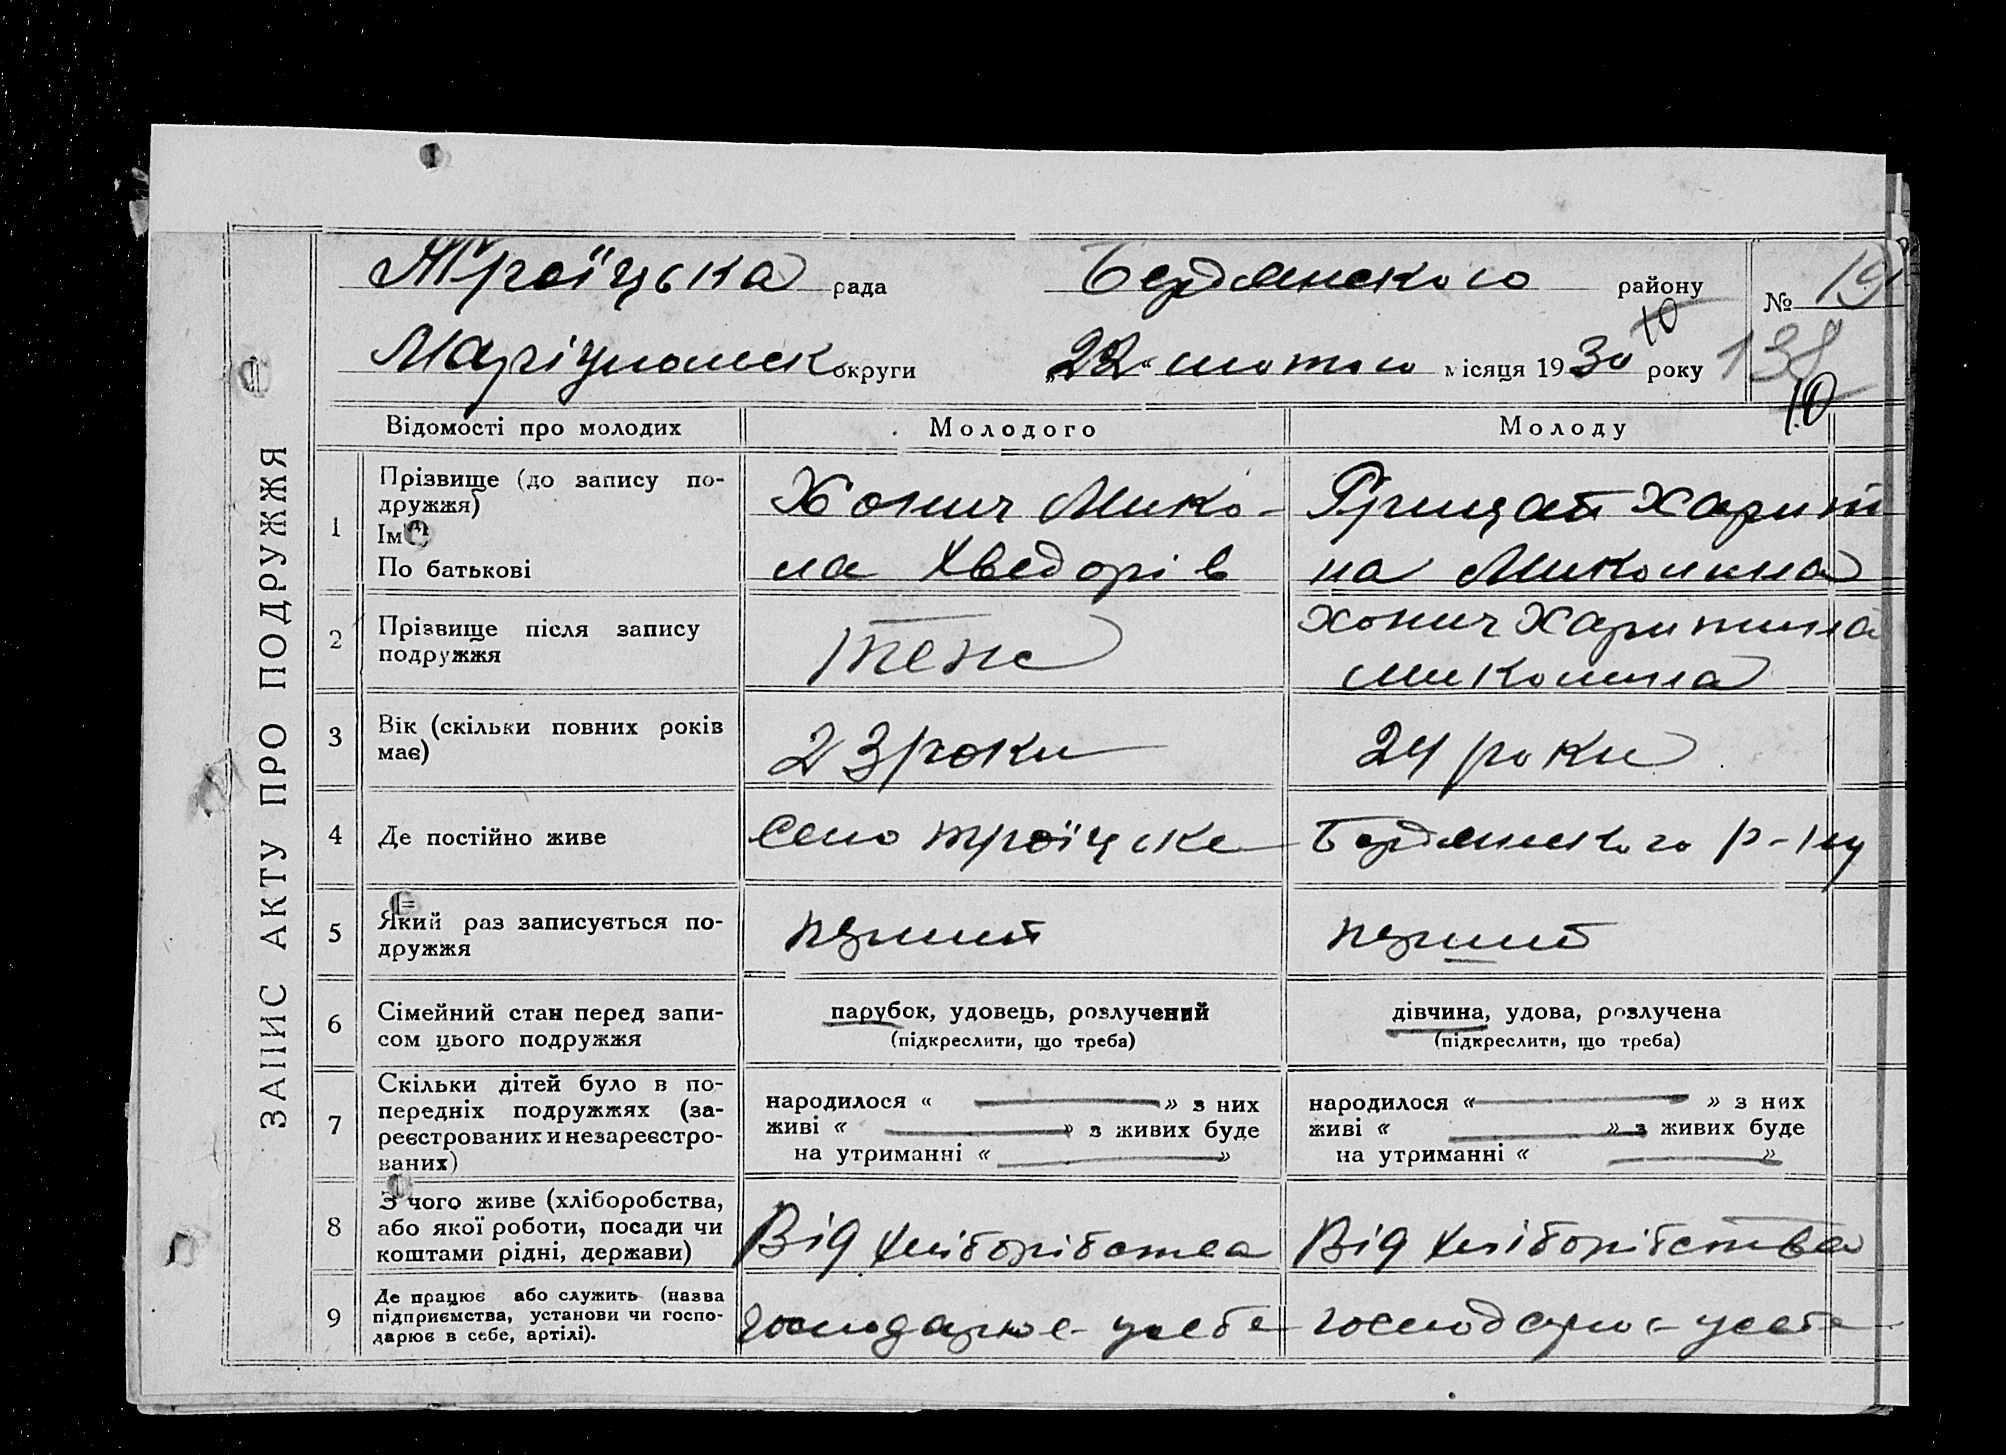 ЗАПИС АКТУ ПРО ПОДРУЖЖЯ
Троїцька рада Бердянского району № 19
Маріупольск округи „22“ лютого місяця 1930 року 138
10
10
Відомості про молодих Молодого Молоду
1 Прізвище (до запису подружжя)
Ім'
По батькові
Хонич Мико-
ла Хведорів
Грицай Харити
на Миколина
2 Прізвище після запису
подружжя
теж
Хонич Харитина
Миколина
3 Вік (скільки повних років
має)
23 роки
24 роки
4 Де постійно живе
село троїцьке
Бердянского р-ну
5 Який раз записується по-
дружжя
перший
перший
6 Сімейний стан перед запи-
сом цього подружжя
парубок, удовець, розлучений
(підкреслити, що треба)
дівчина, удова, розлучена
(підкреслити, що треба)
7 Скільки дітей було в по-
передніх подружжях (за-
реєстрованих и незареєстро-
ваних)
народилося « — » з них
живі « — » з живих буде
на утриманні « — »
народилося « — » з них
живі « — » з живих буде
на утриманні « — »
8 З чого живе (хліборобства,
або якої роботи, посади чи
коштами рідні, держави)
Від хліборібства
Від хліборібства
9 Де працює або служить (назва
підприємства, установи чи госпо-
дарює в себе, артілі).
господарює усебе
господарює усебе